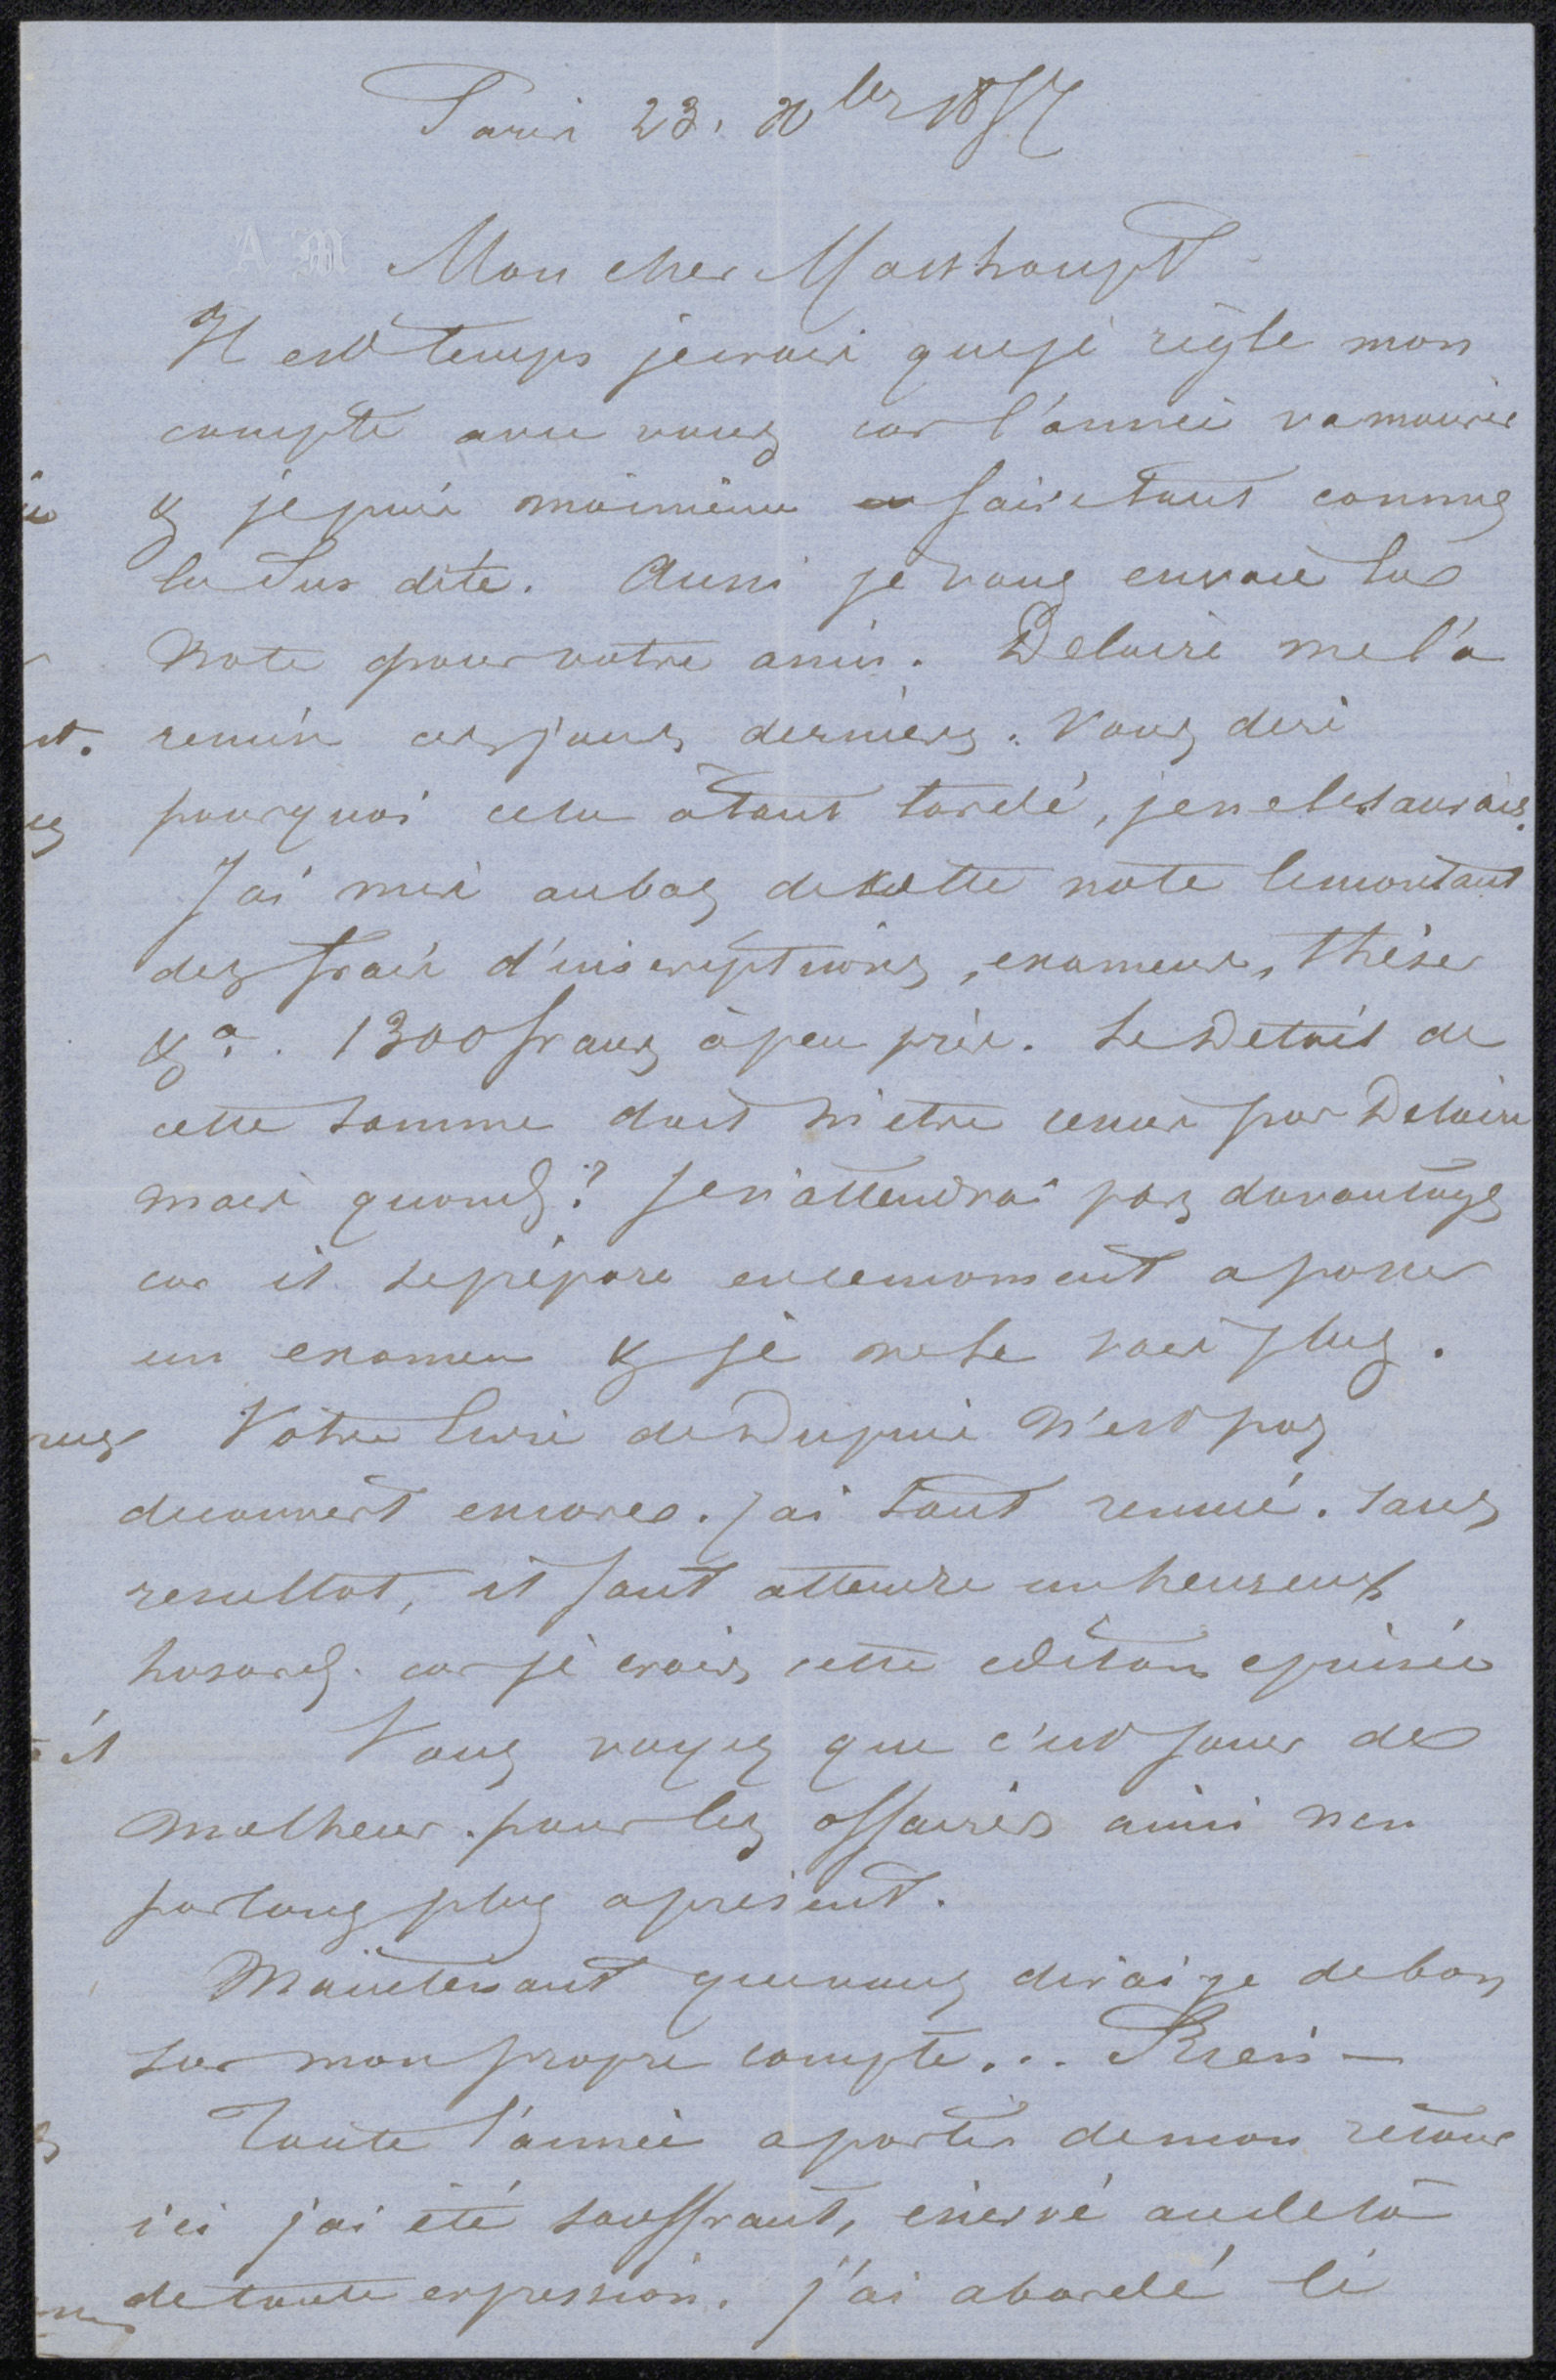 Paris 23. Xbre 1857
A M
Mon cher Mosthoupt
Il est temps je crois que je règle mon
compte avec vous car l'année va mourir
& je puis moi même en faire tout comme
la sus dite. Aussi je vous envoie la
note pour votre ami. Deloire me l'a
remise ces jours derniers. Vous dire
pourquoi cela a tant tardé, je ne le saurais.
J'ai mis au bas de cette note le montant
des frais d'inscriptions, examens, thèses
&a. 1300 francs à peu près. Le Detail de
cette somme doit m'etre remis par Deloire
mais quand? Je n'attendrai pas davantage
car il se prépare en ce moment a passer
un examen & je ne le vois plus.
Votre livre de Dupuis n'est pas
decouvert encore. J'ai tout remué. sans
resultat, il faut attendre un heureux
hasard. car je crois cette edition epuisée
Vous voyez que c'est jouer de
malheur. pour les affaires ainsi n'en
parlons plus a présent.
Maintenant que vous dirai je de bon
sur mon propre compte... Rien —
Toute l'année a partir de mon retour
ici j'ai été souffrant, énervé au delà
de toute expression. j'ai abordé le